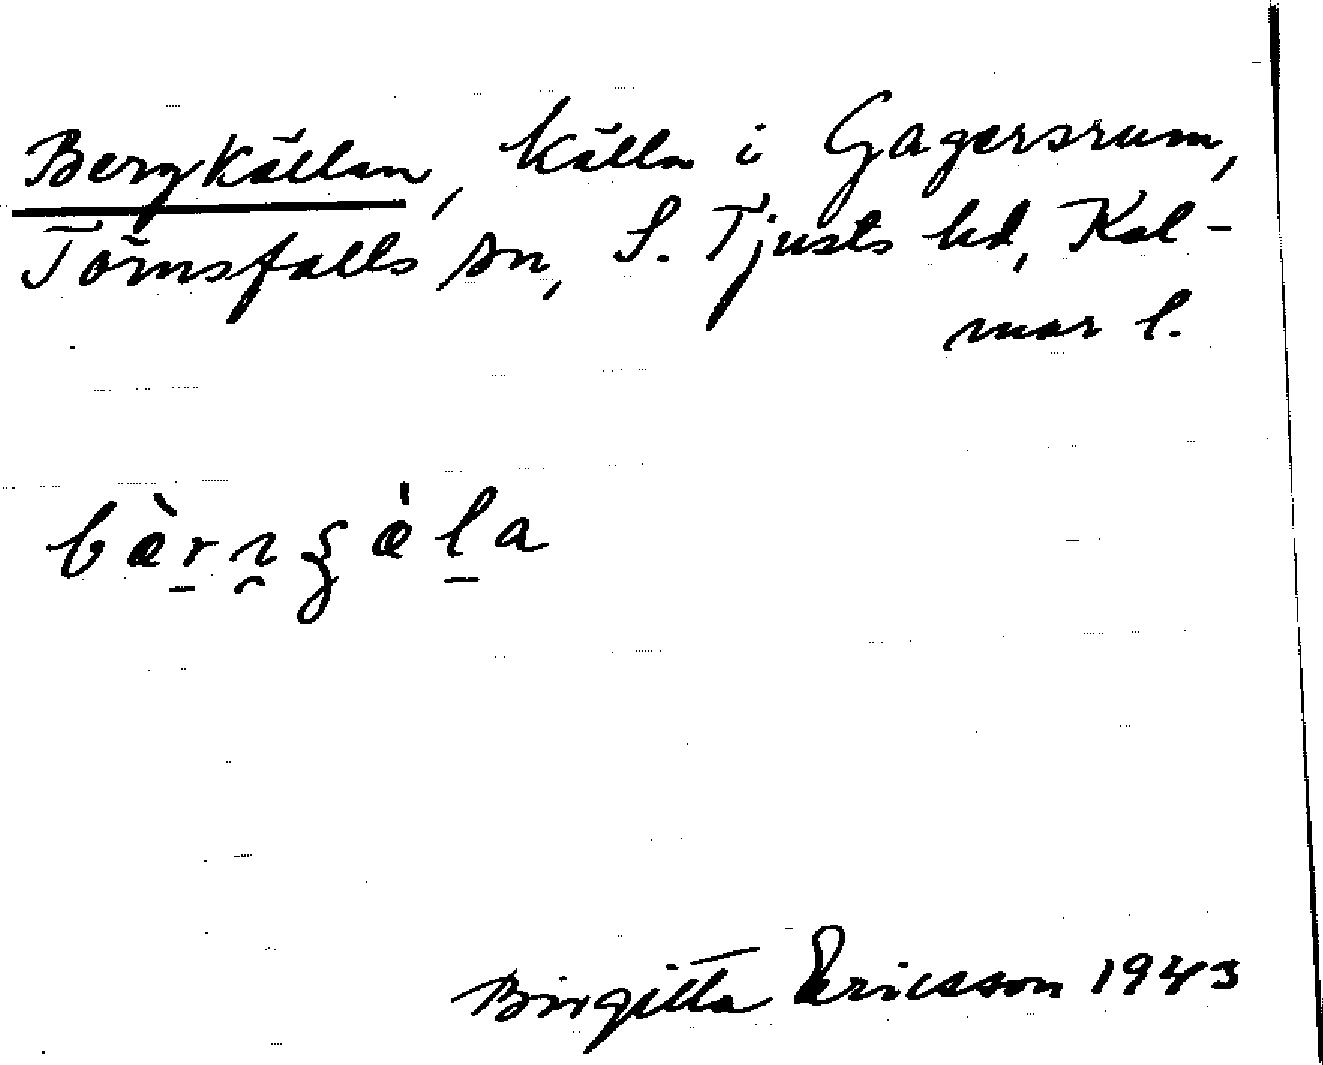 Bergkällan, källa i Gagersrum,
Törnsfalls sn, S. Tjusts hd, Kal-
mar l.
Birgitta Ericsson 1943